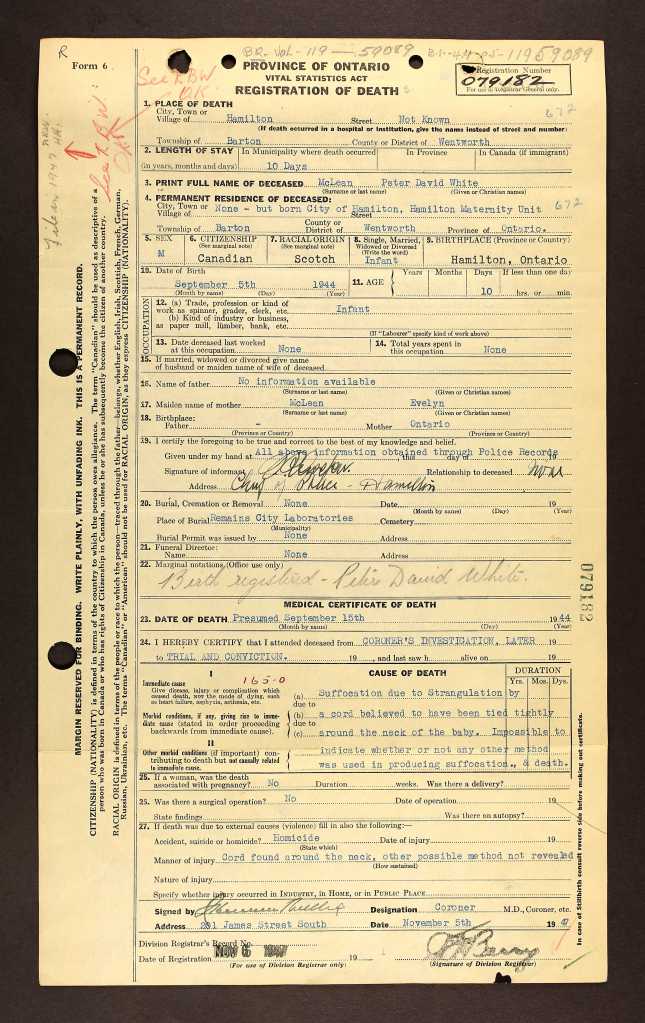 R
BR. Vol - 119 — 59089 B.1-44-05-119 59089
Form 6
See RBW
OK
PROVINCE OF ONTARIO
VITAL STATISTICS ACT
REGISTRATION OF DEATH
Registration Number
079182
For use of Registrar General only.
1. PLACE OF DEATH
City, Town or Village of Hamilton Street Not Known
(If death occurred in a hospital or institution, give the name instead of street and number)
672
Township of Barton County or District of Wentworth
2. LENGTH OF STAY In Municipality where death occurred In Province In Canada (if immigrant)
(in years, months and days) 10 Days
3. PRINT FULL NAME OF DECEASED McLean Peter David White
(Surname or last name) (Given or Christian names)
4. PERMANENT RESIDENCE OF DECEASED:
City, Town or Village of None - but born City of Hamilton, Hamilton Maternity Unit
Street
672
Township of Barton County or District of Wentworth Province of Ontario.
5. SEX 6. CITIZENSHIP (See marginal note) 7. RACIAL ORIGIN (See marginal note) 8. Single, Married, Widowed or Divorced (Write the word) 9. BIRTHPLACE (Province or Country)
M Canadian Scotch Infant Hamilton, Ontario
10. Date of Birth
September 5th 1944
(Month by name) (Day) (Year)
11. AGE Years Months Days If less than one day
10 hrs. or min.
OCCUPATION
12. (a) Trade, profession or kind of work as spinner, grader, clerk, etc. Infant
(b) Kind of industry or business, as paper mill, lumber, bank, etc.
(If "Labourer" specify kind of work above)
13. Date deceased last worked at this occupation None
14. Total years spent in this occupation None
15. If married, widowed or divorced give name of husband or maiden name of wife of deceased
16. Name of father No information available
(Surname or last name) (Given or Christian names)
17. Maiden name of mother McLean Evelyn
(Surname or last name) (Given or Christian names)
18. Birthplace:
Father - Mother Ontario
(Province or Country) (Province or Country)
19. I certify the foregoing to be true and correct to the best of my knowledge and belief.
Given under my hand at All above information obtained through Police Records this day of
Signature of informant Relationship to deceased None
Address Chief of Police - Hamilton
20. Burial, Cremation or Removal None Date 19
(Month by name) (Day) (Year)
Place of Burial Remains City Laboratories Cemetery
(Municipality)
Burial Permit was issued by None Address
21. Funeral Director:
Name None Address
22. Marginal notations, (Office use only)
Birth registered - Peter David White.
MEDICAL CERTIFICATE OF DEATH
23. DATE OF DEATH Presumed September 15th 1944
(Month by name) (Day) (Year)
24. I HEREBY CERTIFY that I attended deceased from CORONER'S INVESTIGATION, LATER
to TRIAL AND CONVICTION. 19 , and last saw h alive on 19
I 165-0 CAUSE OF DEATH DURATION
Yrs. Mos. Dys.
Immediate cause
Give disease, injury or complication which caused death, not the mode of dying, such as heart failure, asphyxia, asthenia, etc.
(a) Suffocation due to Strangulation by
due to
Morbid conditions, if any, giving rise to immediate cause (stated in order proceeding backwards from immediate cause).
(b) a cord believed to have been tied tightly
due to
(c) around the neck of the baby. Impossible to
II
Other morbid conditions (if important) contributing to death but not causally related to immediate cause.
indicate whether or not any other method
was used in producing suffocation., & death.
25. If a woman, was the death associated with pregnancy? No Duration weeks. Was there a delivery?
26. Was there a surgical operation? No Date of operation 19
State findings Was there an autopsy?
27. If death was due to external causes (violence) fill in also the following:—
Accident, suicide or homicide? Homicide Date of injury 19
(State which)
Manner of injury Cord found around the neck, other possible method not revealed
(How sustained)
Nature of injury
Specify whether injury occurred in INDUSTRY, in HOME, or in PUBLIC PLACE
Signed by Designation Coroner M.D., Coroner, etc.
Address 291 James Street South Date November 5th 1947
Division Registrar's Record No.
Date of Registration NOV 6 1947 19
(For use of Division Registrar only) (Signature of Division Registrar)
MARGIN RESERVED FOR BINDING. WRITE PLAINLY, WITH UNFADING INK. THIS IS A PERMANENT RECORD.
CITIZENSHIP (NATIONALITY) is defined in terms of the country to which the person owes allegiance. The term "Canadian" should be used as descriptive of a person who was born in Canada or who has rights of Citizenship in Canada, unless he or she has subsequently become the citizen of another country.
RACIAL ORIGIN is defined in terms of the people or race to which the person—traced through the father—belongs, whether English, Irish, Scottish, French, German, Russian, Ukrainian, etc. The terms "Canadian" or "American" should not be used for RACIAL ORIGIN, as they express CITIZENSHIP (NATIONALITY).
See RBW:
OK
079182
In case of Stillbirth consult reverse side before making out certificate.